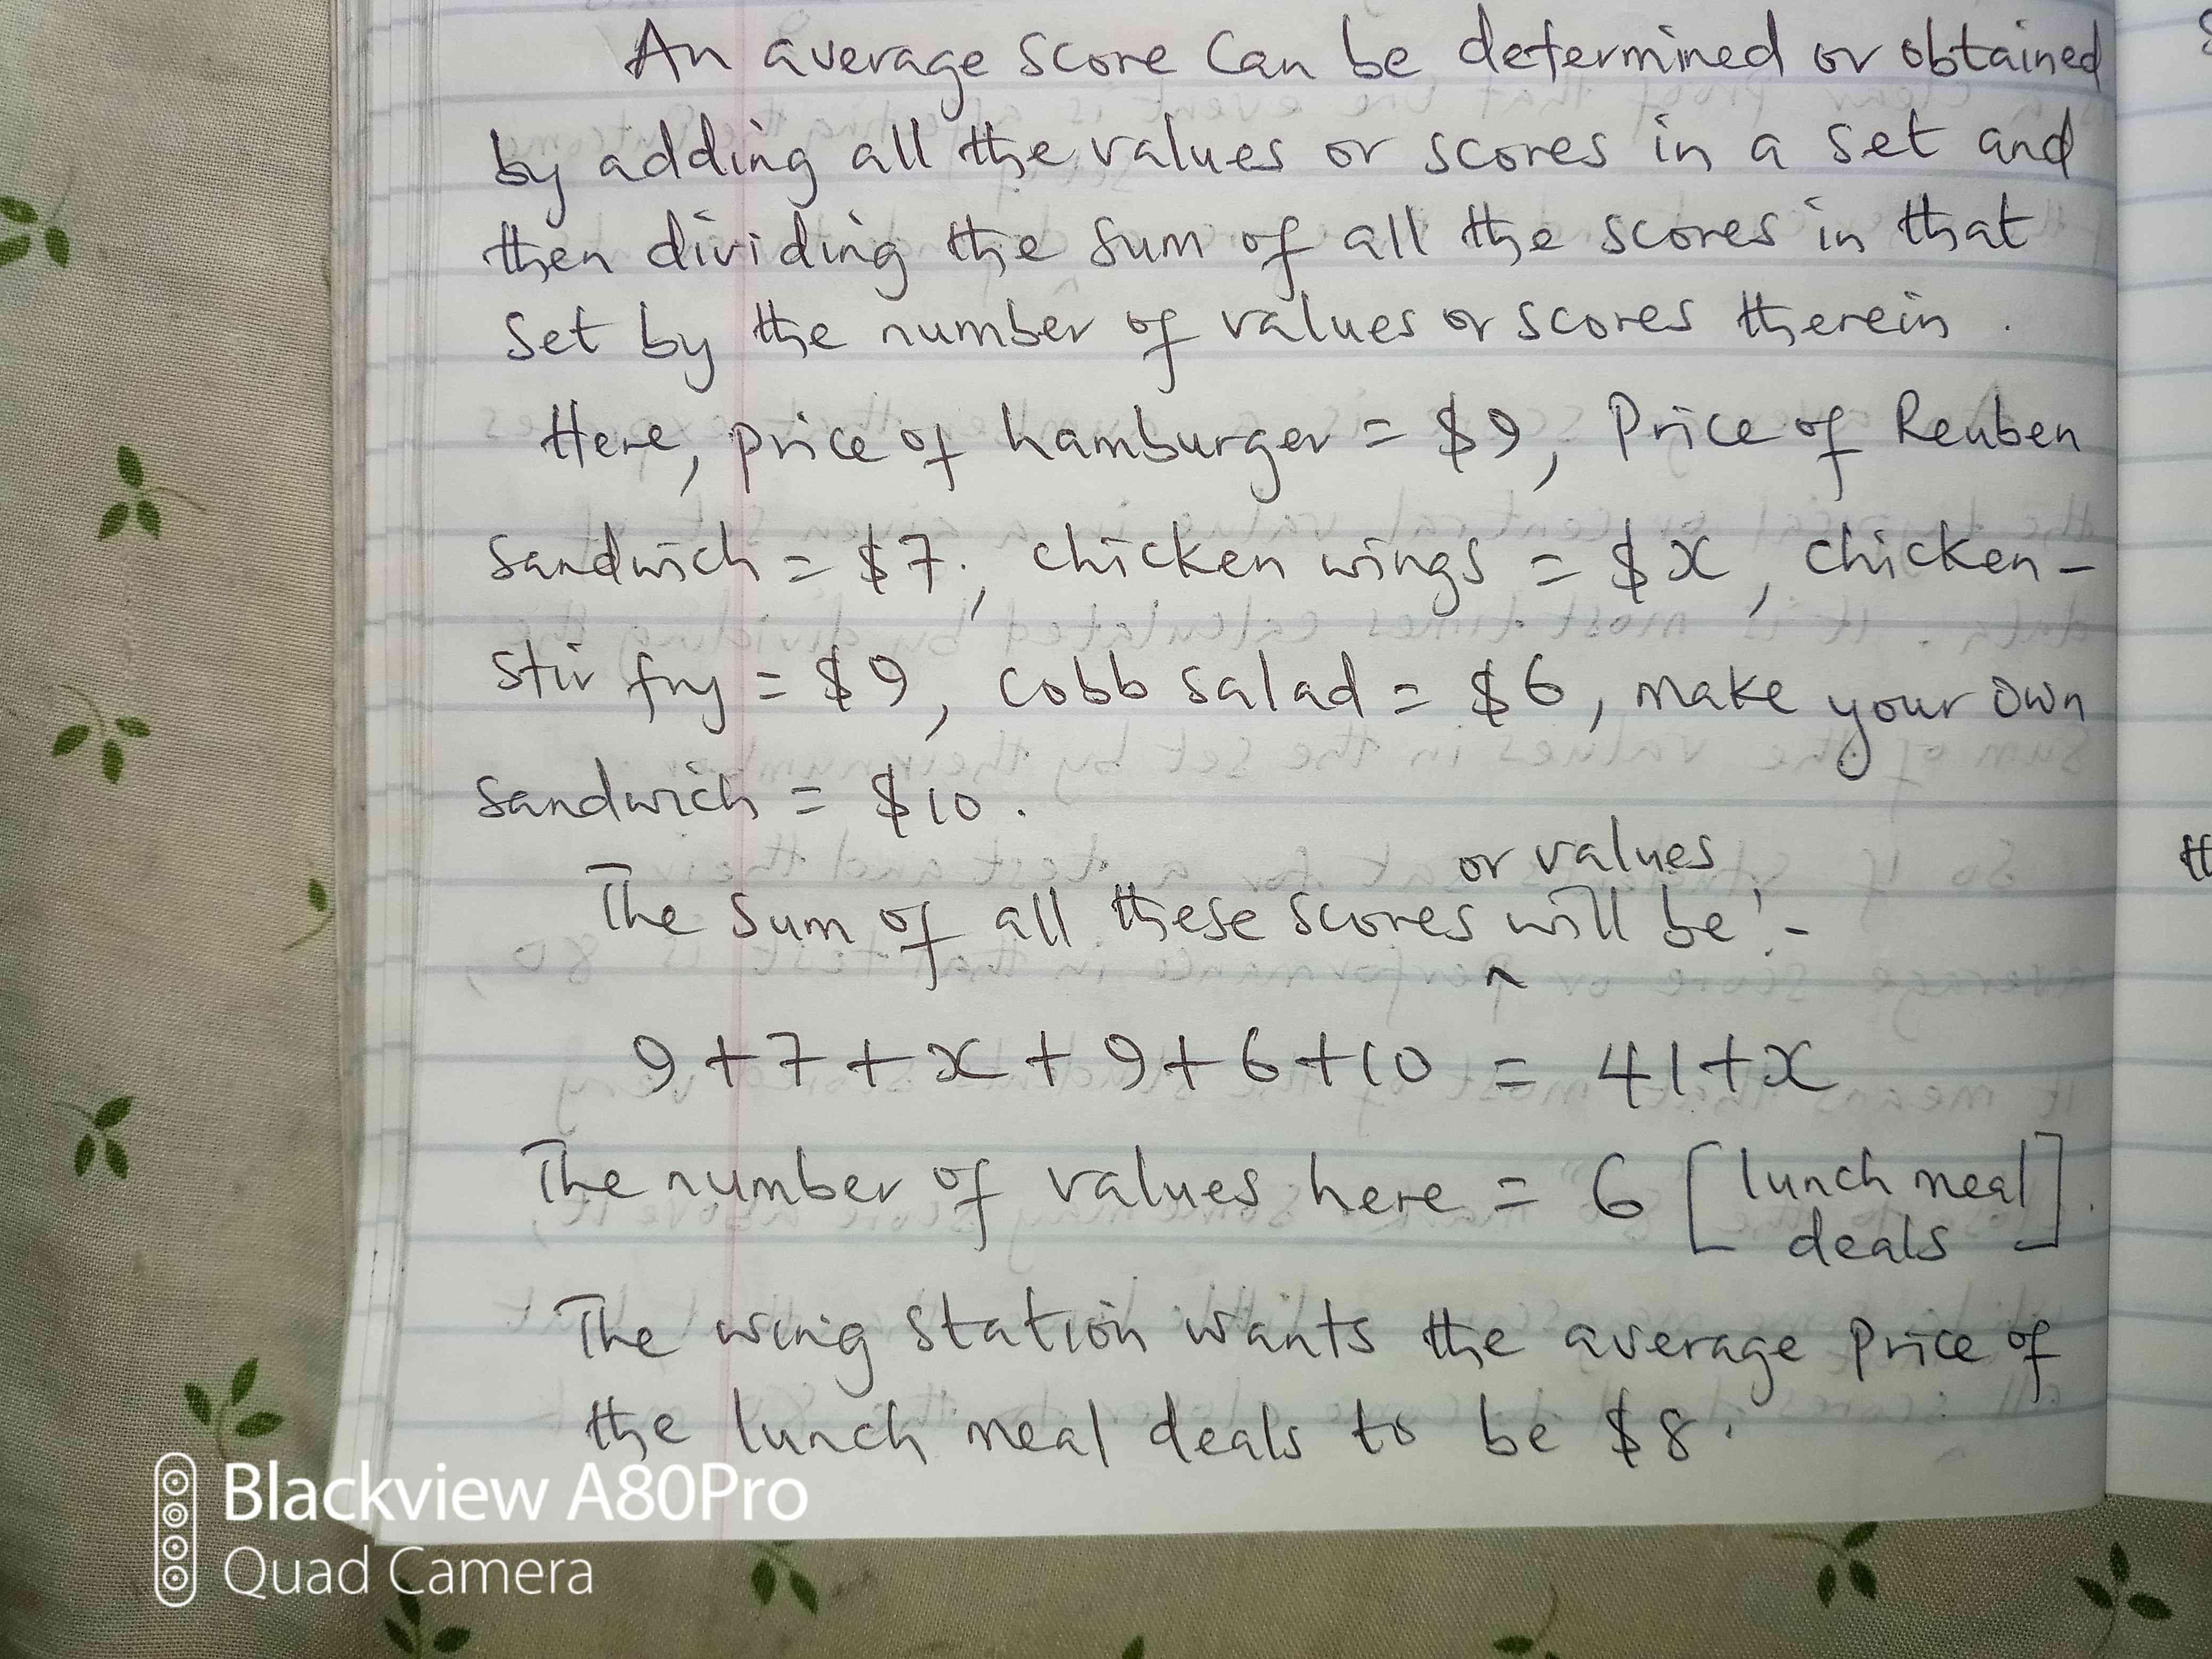 An average score can be determined or obtained
by adding all the values or scores in a set and
then dividing the sum of all the scores in that
set by the number of values or scores therein.
Here, price of hamburger = $9, Price of Reuben
sandwich = $7, chicken wings = $x, chicken-
stir fry = $9, cobb salad = $6, make your own
sandwich = $10.
or values
The sum of all these scores ^ will be:-
9 + 7 + x + 9 + 6 + 10 = 41 + x
The number of values here = 6 [lunch meal
deals].
The wing station wants the average price of
the lunch meal deals to be $8.
Blackview A80Pro
Quad Camera